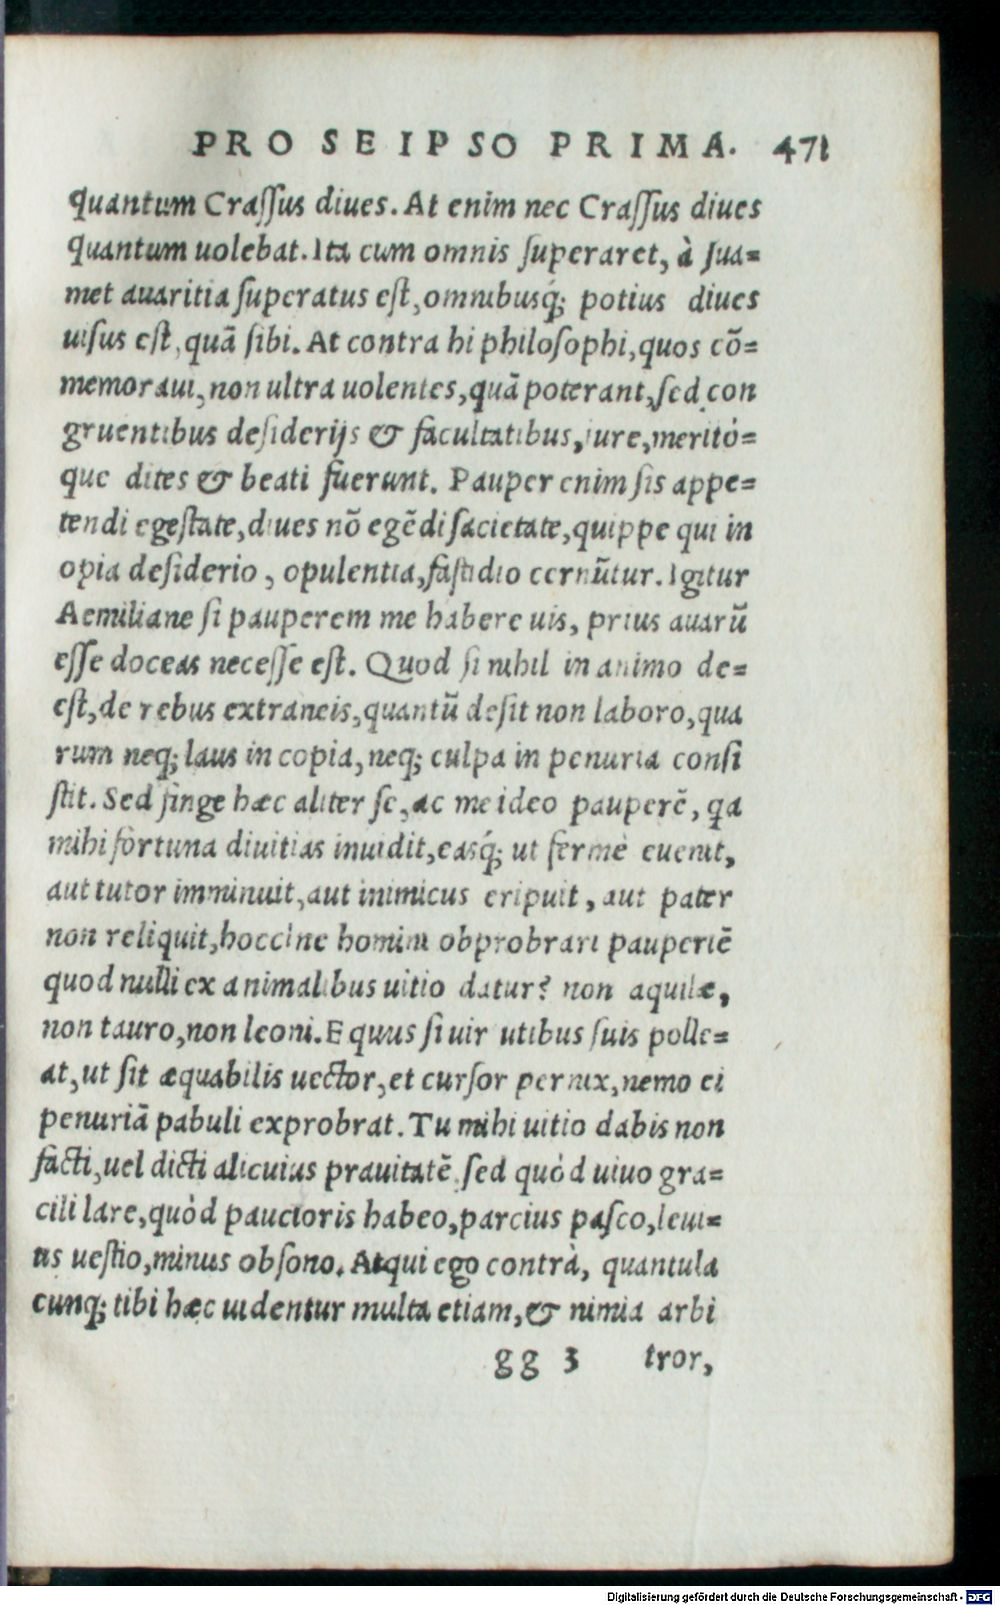 PRO SEIPSO PRIMA. 471
quantum Crassus diues. At enim nec Crassus diues
quantum uolebat. Ita cum omnis superaret, à sua=
met auaritia superatus est, omnibusq́; potius diues
uisus est, quā sibi. At contra hi philosophi, quos cō=
memoraui, non ultra uolentes, quā poterant, sed con
gruentibus desiderijs & facultatibus, iure, meritó=
que dites & beati fuerunt. Pauper enim sis appe=
tendi egestate, diues nō egēdi sacietate, quippe qui in
opia desiderio, opulentia, fastidio cernūtur. Igitur
Aemiliane si pauperem me habere uis, prius auarū
esse doceas necesse est. Quod si nihil in animo de=
est, de rebus extraneis, quantū desit non laboro, qua
rum neq; laus in copia, neq; culpa in penuria consi
stit. Sed finge hæc aliter se, ac me ideo pauperē, qa
mihi fortuna diuitias inuidit, easq́; ut fermè euenit,
aut tutor imminuit, aut inimicus eripuit, aut pater
non reliquit, hoccine homini obprobrari pauperiē
quod nulli ex animalibus uitio datur? non aquilæ,
non tauro, non leoni. Equus si uir utibus suis polle=
at, ut sit æquabilis uector, et cursor pernix, nemo ei
penuriā pabuli exprobrat. Tu mihi uitio dabis non
facti, uel dicti alicuius prauitatē sed quòd uiuo gra=
cili lare, quòd paucioris habeo, parcius pasco, leui=
us uestio, minus obsono. Atqui ego contrà, quantula
cunq; tibi hæc uidentur multa etiam, & nimia arbi
gg 3 tror,
Digitalisierung gefördert durch die Deutsche Forschungsgemeinschaft - DFG